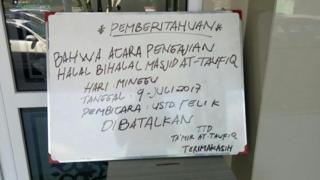 * PEMBERITAHUAN *
BAHWA ACARA PENGAJIAN
HALAL BIHALAL MASJID AT-TAUFIQ
HARI MINGGU
TANGGAL : 9-JULI 2017
PEMBICARA : USTD. FELIK
DIBATALKAN
TTD
TA'MIR AT-TAUFIQ
TERIMAKASIH